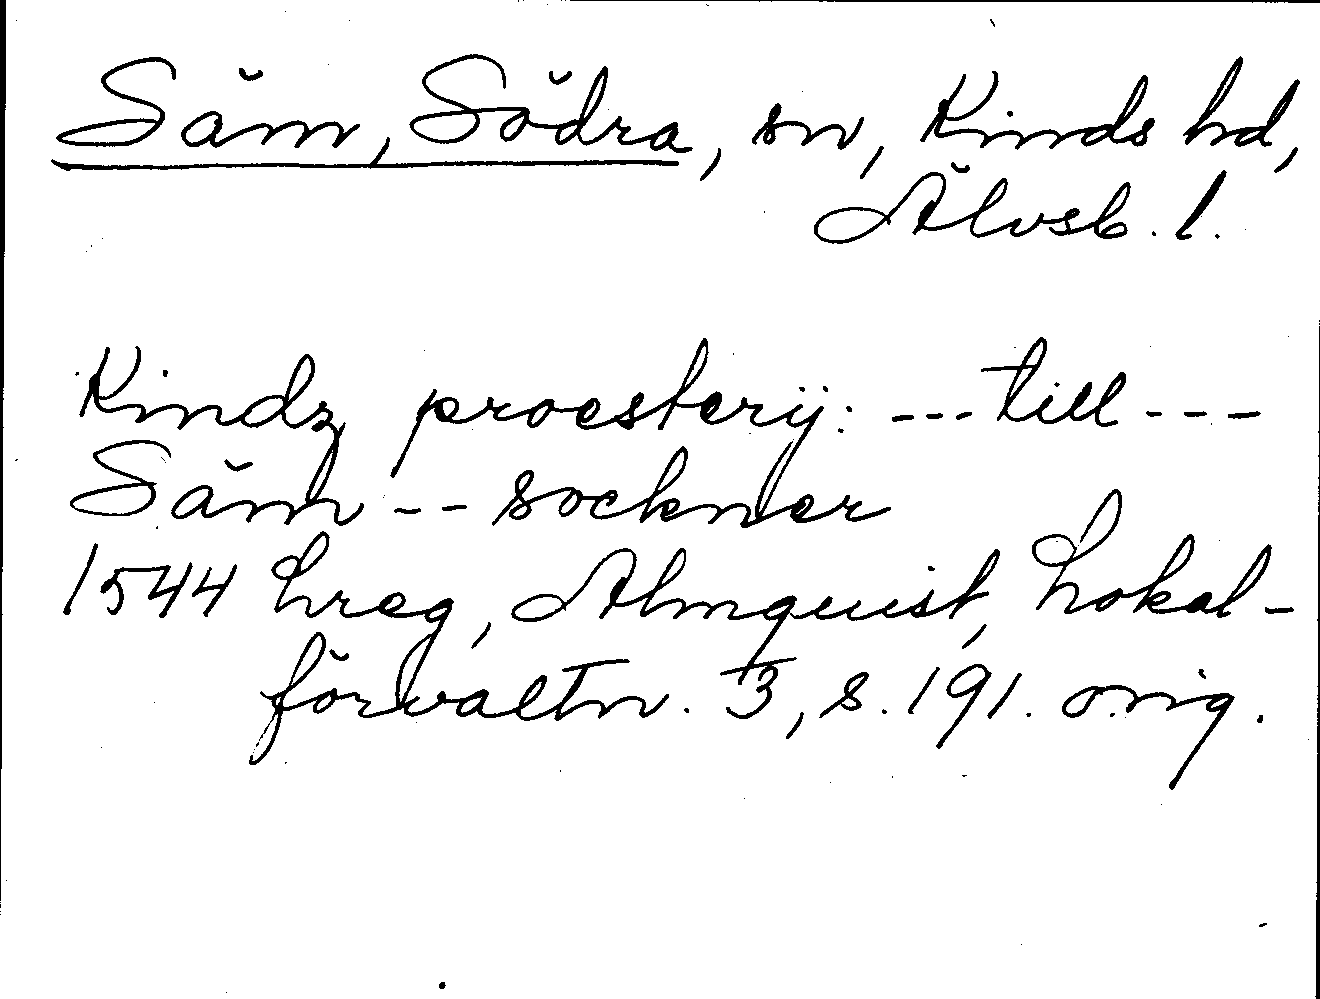 Säm, Södra, sn, Kinds hd,
Älvsb. l.
Kindz proesterij: --- till ---
Säm -- sockner
1544 Lreg, Almquist, Lokal-
förvaltn. 3, s. 191. orig.